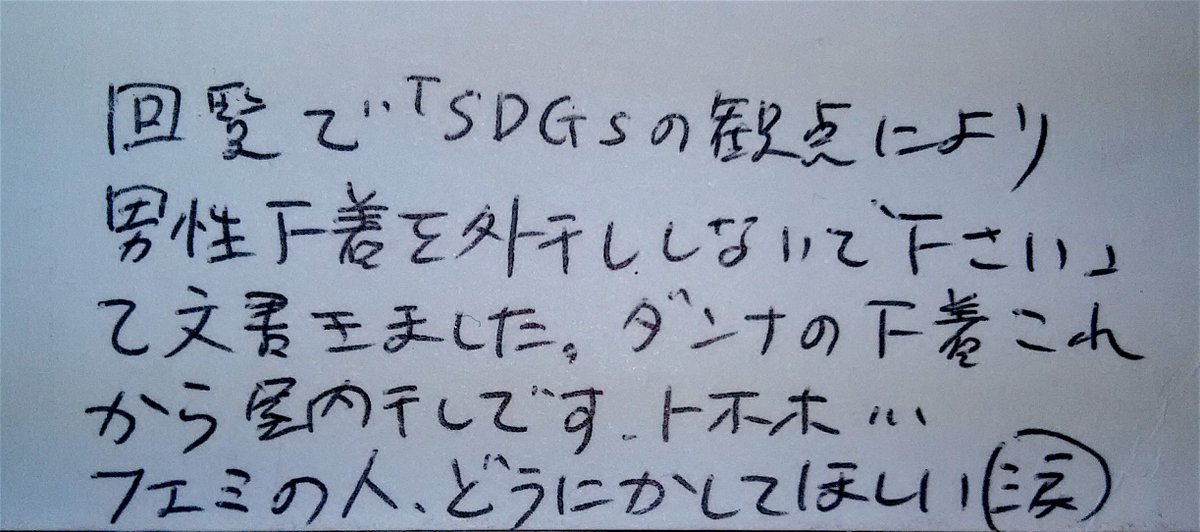 回覧で「SDGsの観点により
男性下着を外干ししないで下さい」
て文書きました。ダンナの下着これ
から室内干しです、トホホ…
フェミの人、どうにかしてほしい(涙)